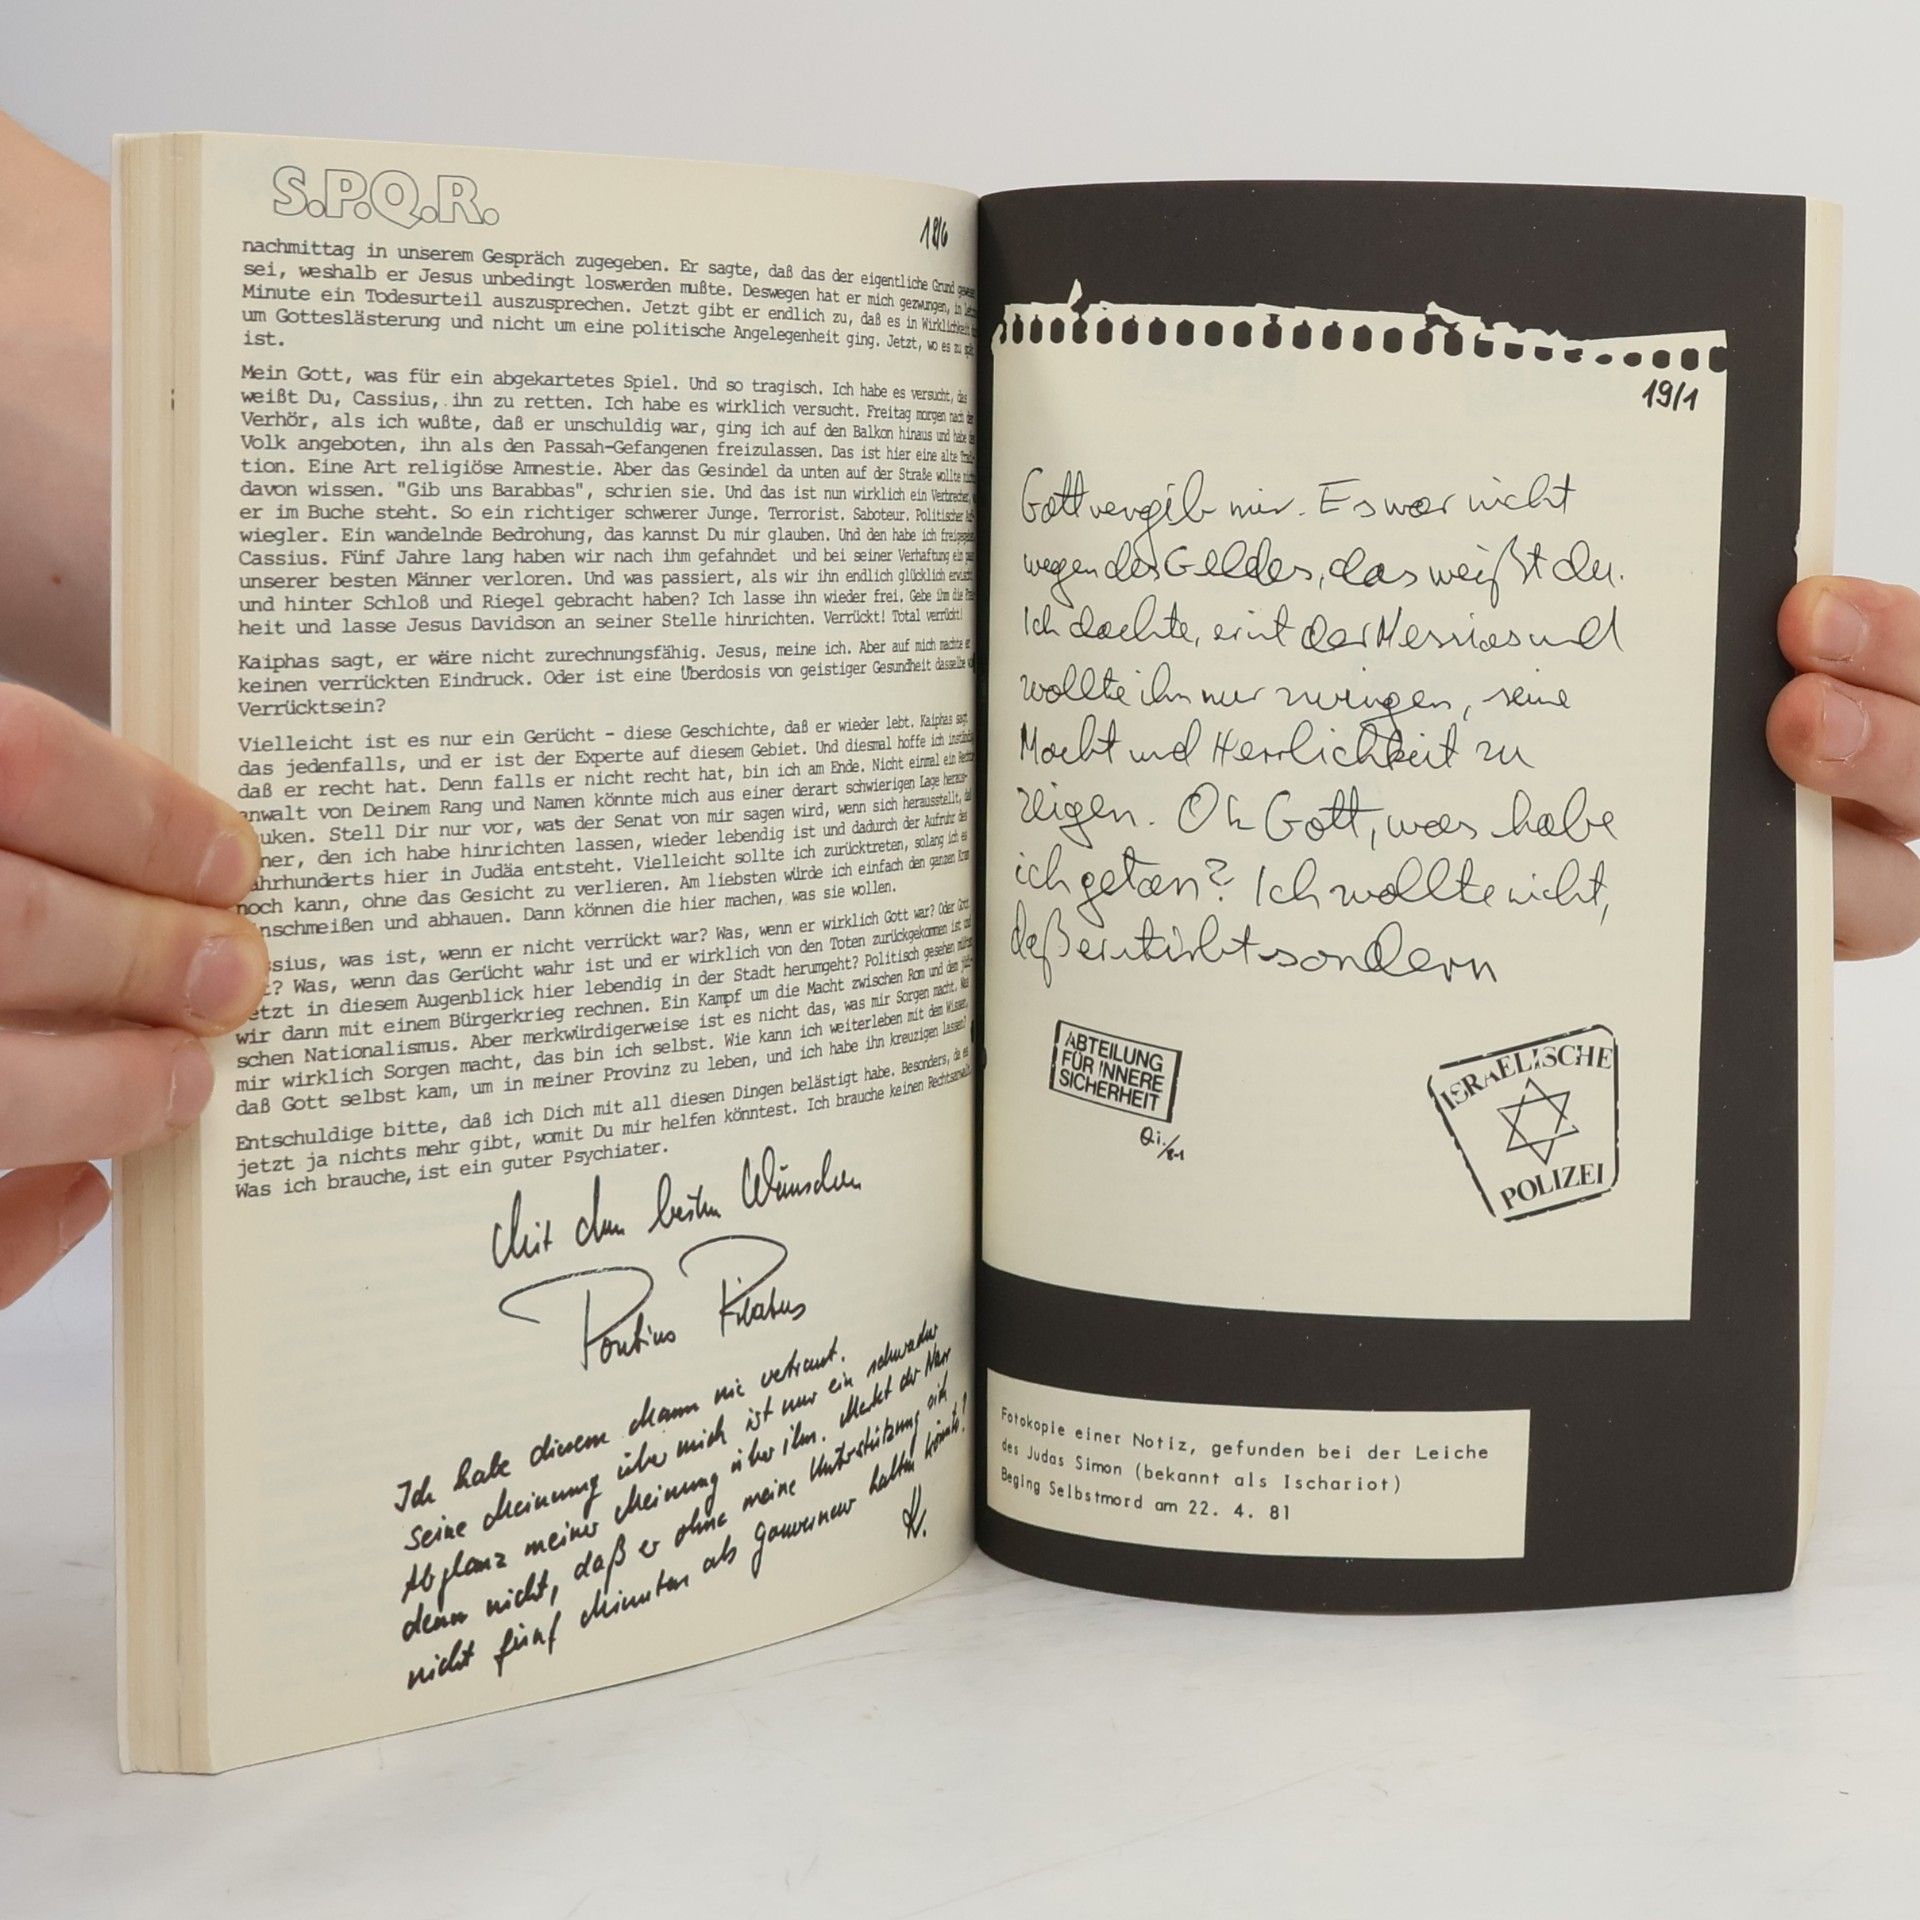 S.P.Q.R.
18/6
nachmittag in unserem Gespräch zugegeben. Er sagte, daß das der eigentliche Grund gewesen
sei, weshalb er Jesus unbedingt loswerden mußte. Deswegen hat er mich gezwungen, in letzter
Minute ein Todesurteil auszusprechen. Jetzt gibt er endlich zu, daß es in Wirklichkeit
um Gotteslästerung und nicht um eine politische Angelegenheit ging. Jetzt, wo es zu spät
ist.
Mein Gott, was für ein abgekartetes Spiel. Und so tragisch. Ich habe es versucht, das
weißt Du, Cassius, ihn zu retten. Ich habe es wirklich versucht. Freitag morgen nach dem
Verhör, als ich wußte, daß er unschuldig war, ging ich auf den Balkon hinaus und habe dem
Volk angeboten, ihn als den Passah-Gefangenen freizulassen. Das ist hier eine alte Tradi-
tion. Eine Art religiöse Amnestie. Aber das Gesindel da unten auf der Straße wollte nichts
davon wissen. "Gib uns Barabbas", schrien sie. Und das ist nun wirklich ein Verbrecher,
er im Buche steht. So ein richtiger schwerer Junge. Terrorist. Saboteur. Politischer Auf-
wiegler. Ein wandelnde Bedrohung, das kannst Du mir glauben. Und den habe ich freigegeben
Cassius. Fünf Jahre lang haben wir nach ihm gefahndet und bei seiner Verhaftung ein paar
unserer besten Männer verloren. Und was passiert, als wir ihn endlich glücklich erwischt
und hinter Schloß und Riegel gebracht haben? Ich lasse ihn wieder frei. Gebe ihm die Frei-
heit und lasse Jesus Davidson an seiner Stelle hinrichten. Verrückt! Total verrückt!
Kaiphas sagt, er wäre nicht zurechnungsfähig. Jesus, meine ich. Aber auf mich machte er
keinen verrückten Eindruck. Oder ist eine Überdosis von geistiger Gesundheit dasselbe wie
Verrücktsein?
Vielleicht ist es nur ein Gerücht - diese Geschichte, daß er wieder lebt. Kaiphas sagt
das jedenfalls, und er ist der Experte auf diesem Gebiet. Und diesmal hoffe ich inständig
daß er recht hat. Denn falls er nicht recht hat, bin ich am Ende. Nicht einmal ein Rechts-
anwalt von Deinem Rang und Namen könnte mich aus einer derart schwierigen Lage heraus-
auken. Stell Dir nur vor, was der Senat von mir sagen wird, wenn sich herausstellt, daß
ner, den ich habe hinrichten lassen, wieder lebendig ist und dadurch der Aufruhr des
ahrhunderts hier in Judäa entsteht. Vielleicht sollte ich zurücktreten, solang ich es
noch kann, ohne das Gesicht zu verlieren. Am liebsten würde ich einfach den ganzen Kram
nschmeißen und abhauen. Dann können die hier machen, was sie wollen.
ssius, was ist, wenn er nicht verrückt war? Was, wenn er wirklich Gott war? Oder Gott
t? Was, wenn das Gerücht wahr ist und er wirklich von den Toten zurückgekommen ist und
etzt in diesem Augenblick hier lebendig in der Stadt herumgeht? Politisch gesehen müßten
wir dann mit einem Bürgerkrieg rechnen. Ein Kampf um die Macht zwischen Rom und dem jüdi-
schen Nationalismus. Aber merkwürdigerweise ist es nicht das, was mir Sorgen macht. Was
mir wirklich Sorgen macht, das bin ich selbst. Wie kann ich weiterleben mit dem Wissen,
daß Gott selbst kam, um in meiner Provinz zu leben, und ich habe ihn kreuzigen lassen?
Entschuldige bitte, daß ich Dich mit all diesen Dingen belästigt habe. Besonders, da es
jetzt ja nichts mehr gibt, womit Du mir helfen könntest. Ich brauche keinen Rechtsanwalt.
Was ich brauche, ist ein guter Psychiater.
Mit den besten Wünschen
Pontius Pilatus
Ich habe diesem Mann nie vetraut.
Seine Meinung über mich ist nur ein schwacher
Abglanz meiner Meinung über ihn. Merkt der Narr
denn nicht, daß er ohne meine Unterstützung sich
nicht fünf Minuten als Gouverneur halten könnte?
K.
19/1
Gott vergib mir. Es war nicht
wegen des Geldes, das weißt du.
Ich dachte, er ist der Messias und
wollte ihn nur zwingen, seine
Macht und Herrlichkeit zu
zeigen. Oh Gott, was habe
ich getan? Ich wollte nicht,
daß er stirbt sondern
ABTEILUNG
FÜR INNERE
SICHERHEIT
Qi./81
ISRAELISCHE
POLIZEI
Fotokopie einer Notiz, gefunden bei der Leiche
des Judas Simon (bekannt als Ischariot)
Beging Selbstmord am 22. 4. 81